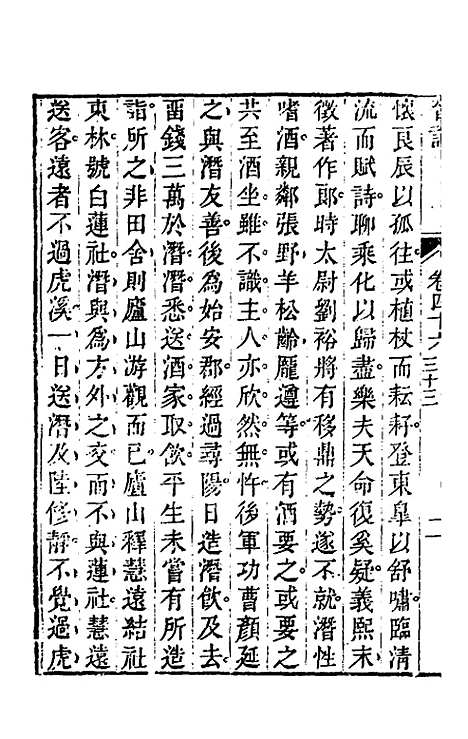 卷四十六 三十三
懷良辰以孤往或植杖而耘耔登東臯以舒嘯臨清
流而賦詩聊乘化以歸盡樂夫天命復奚疑義熙末
徵著作郎時太尉劉裕將有移鼎之勢遂不就潛性
嗜酒親鄰張野羊松齡龐遵等或有酒要之或要之
共至酒坐雖不識主人亦欣然無忤後軍功曹顏延
之與潛友善後為始安郡經過尋陽日造潛飲及去
畱錢三萬於潛潛悉送酒家取飲平生未嘗有所造
詣所之非田舍則廬山游觀而已廬山釋慧遠結社
東林號白蓮社潛與為方外之交而不與蓮社慧遠
送客遠者不過虎溪一日送潛及陸修靜不覺過虎